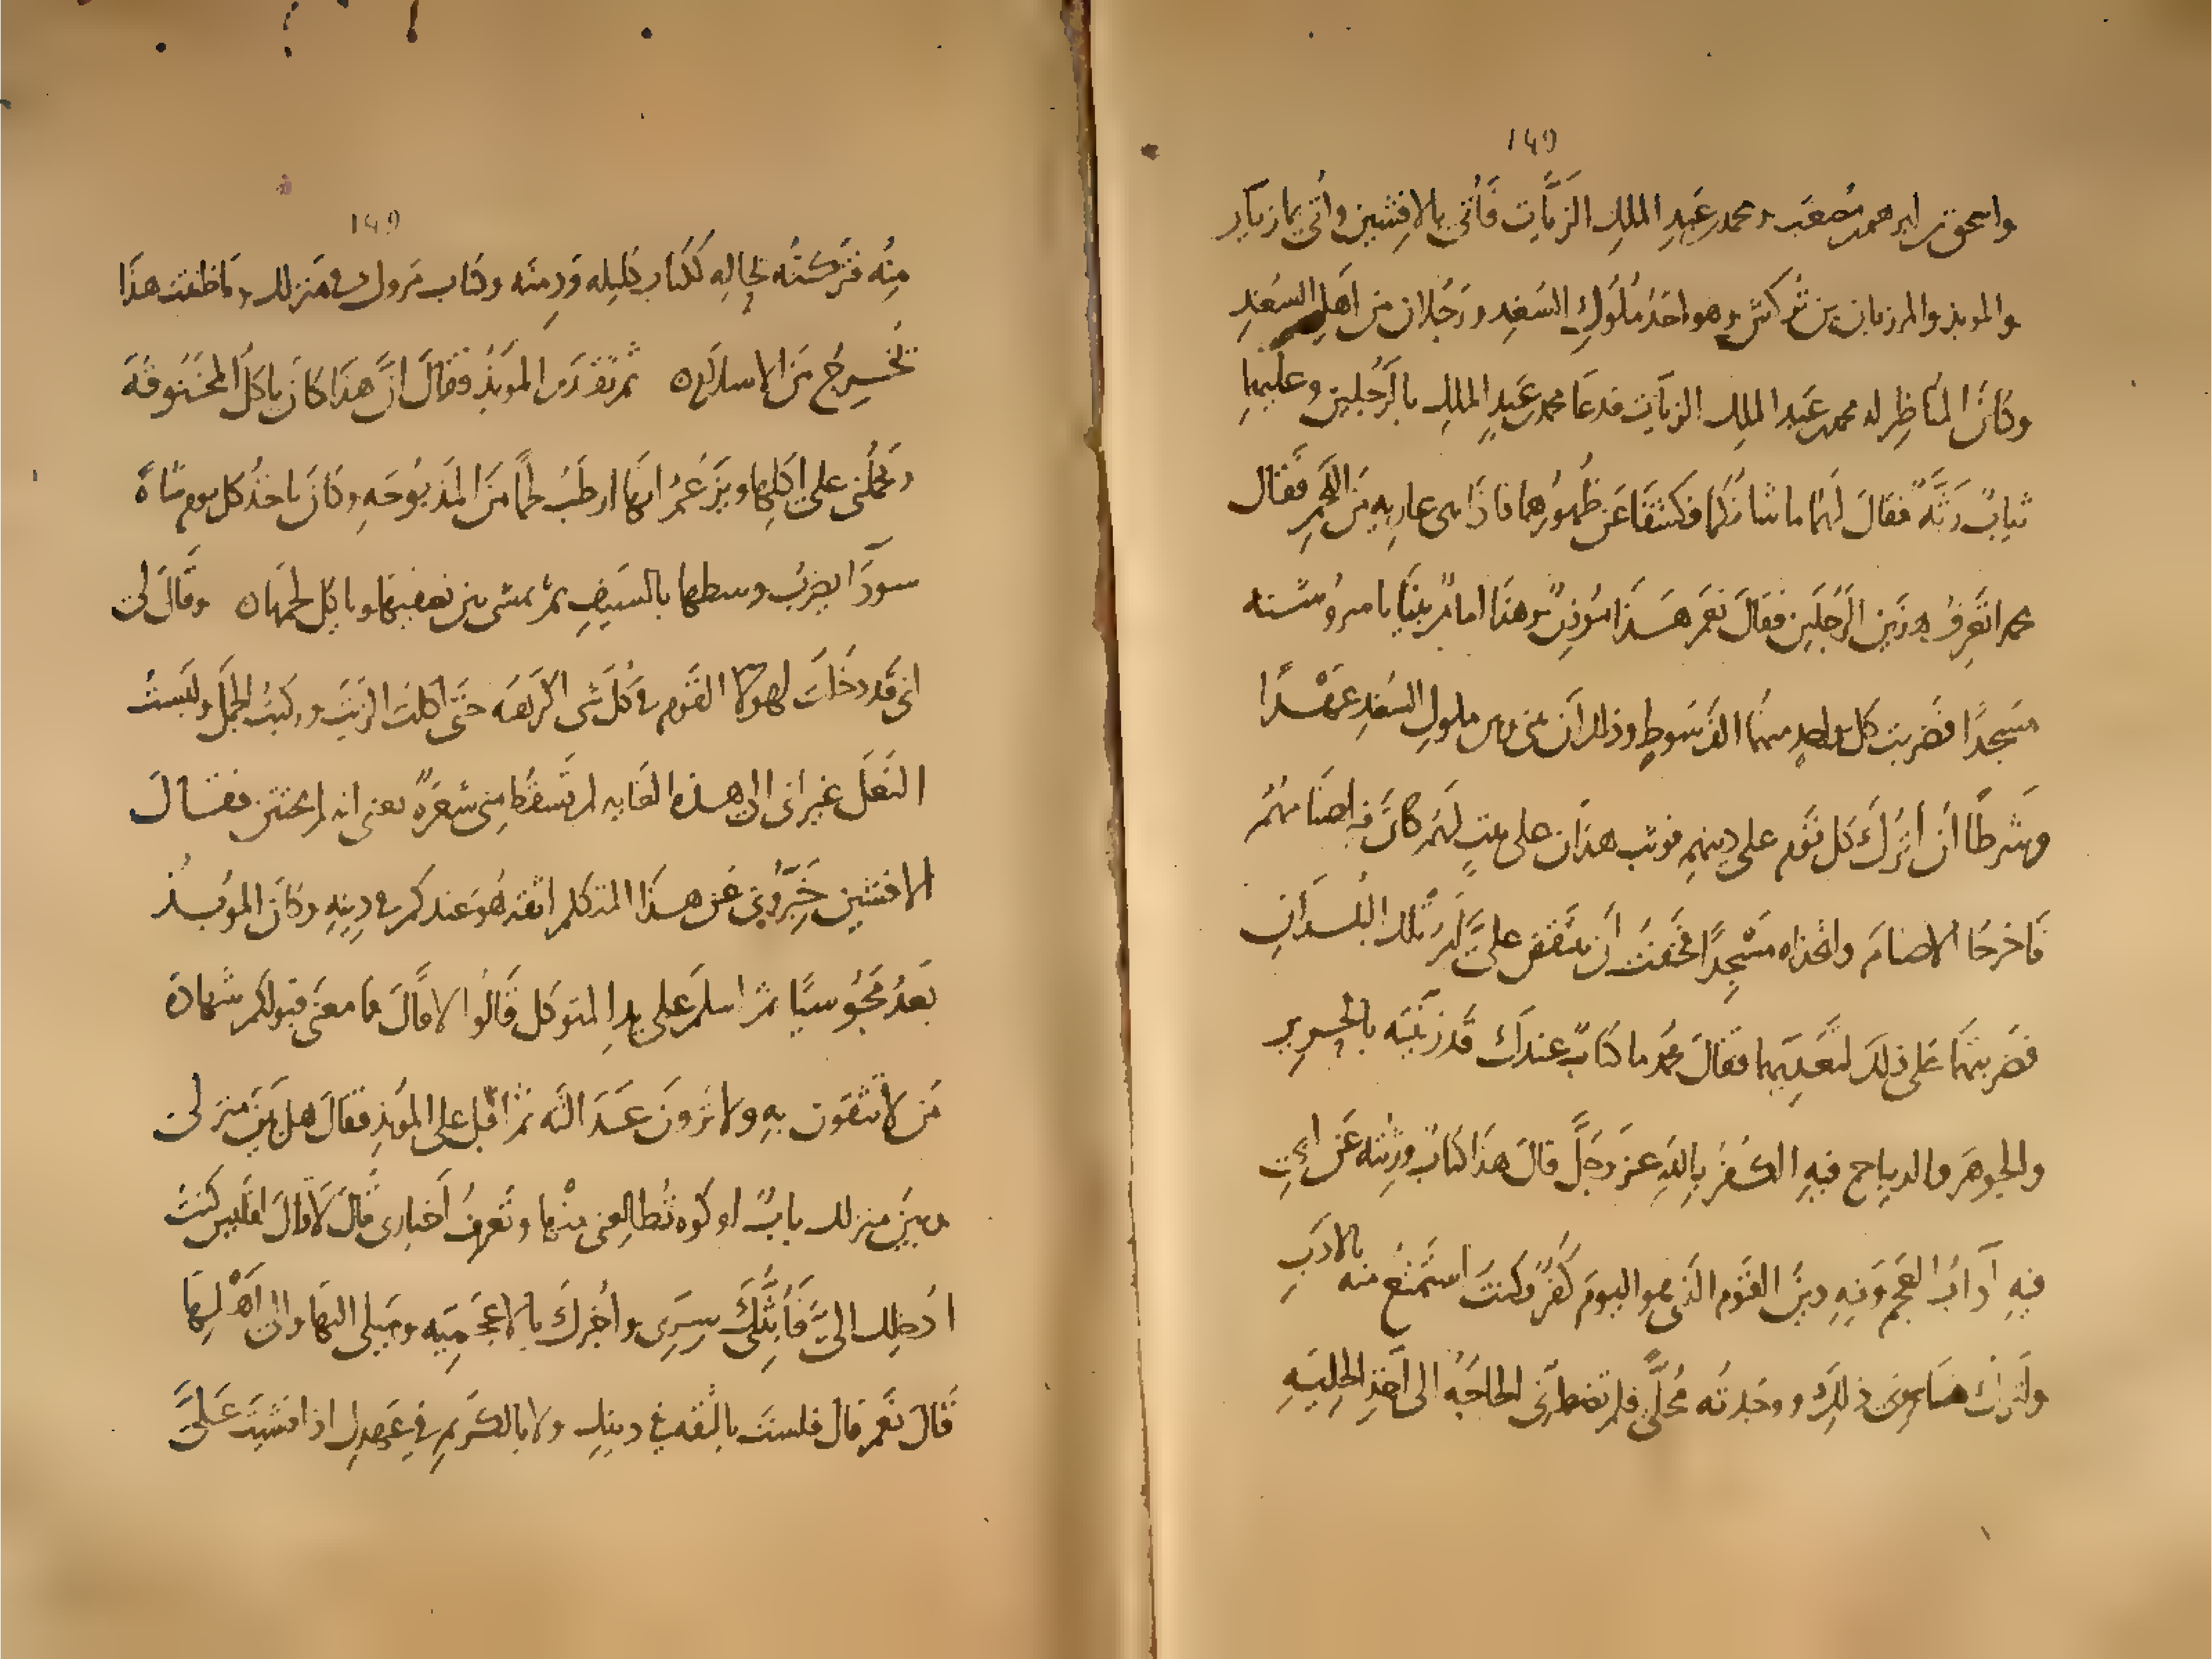 ١٤٩
واسحق بن ابرهيم بن مُصعَب ومحمد بن عَبدِ الملك الزيَّات فَأُتي بالافشين وأُتي بمازيار
والموبذ والمرزبان بن تُركش وهو احَدُ مُلوك السُغد ورَجُلان من اهلِ السُغدِ
وكانَ المنَاظِر له محمد بن عَبد الملك الزيات فدعَا محمد بن عَبدِ الملك بالرَجُلين وعليهما
ثيابٌ رَثَّةٌ فقالَ لَهما ما شانكما فكشفَا عَن ظُهورهما فاذا هى عارية مِن اللحم فَقال
محمد اتَعرفُ هذَين الرَجُلَين فقالَ نعَم هَذا مؤذِنٌ وهذا امامٌ بنَيا باسروشنه
مَسجدًا فضربت كل واحدٍ منهما الف سَوطٍ وذلك انَ بيني وبين ملوك السُغدِ عَهْدًا
وشَرطًا أن اترُكَ كل قَوم على دينهم فوثب هذان على بيتٍ لهم كانَ فيه اصنامُهُم
فاخرجَا الاصنامَ واتخذاه مَسْجِدًا فخفتُ أن ينتقض علىَّ امرُ تلك البُلدان
فضَربتهمَا عَلى ذلكَ لتعَديهما فقالَ محمد ما كتابٌ عندَكَ قَد زيَّنتَه بالحرير
والجوهَر والديباج فيهِ الكفرُ بالله عز وجَلَّ قالَ هذَا كتابٌ ورِثته عَن ابي
فيهِ آدابُ العَجم وفيهِ دينُ القَوم الذي هو اليومَ كُفرٌ وكنتُ استمتعُ منه بالادَبِ
واترك ما سوى ذلكَ ووجَدتُه مُحلًّى فلم تضطرَّني الحاجَةُ الى اَخذِ الحِليَةِ
١٤٩
مِنُه فتَركتُه بحالِهِ ككتابِ كليله ودِمنَه وكتاب مَزدك في مَنزلك وما ظننت هذَا
تُخرِجُ مِنَ الاسلام ه ثم تقدَّم الموبَذُ فقالَ انَّ هذَا كانَ ياكلُ المخنُوقَةَ
ويَحملُني على اكلِها ويَزعُمُ انها ارطَبُ لحمًا مِنَ المذبُوحَهِ وكانَ ياخذُ كل يوم شاةً
سودآ يضربُ وسطها بالسَيفِ ثمَّ يمشي بين نصفيها وياكل لحمَها ه وقالَ لى
اني قَد دخَلتُ لهولآ القَوم في كل شي اكرَهَهُ حَتَّى اكلتُ الزَيتَ وركبتُ الجَملَ ولَبستُ
النَعَلَ غير انى الى هذه الغَايه لم تَسقُط مِنى شَعرَةٌ يعنى انه لم يختتن فقالَ
الافشين خَبِّرُوني عَن هذَا المتكلم اثقه هُوَ عندكم في دِينِهِ وكانَ الموبذُ
بَعدُ مَجُوسيًا ثم اسلم على يد المتوكل قالُوا لا قالَ فما معنَى قبولكم شَهادةَ
مَن لا تثقون بهِ ولا ترونَ عَدالتَه ثم اقبل على الموبذِ فقالَ هل بَينَ منزلى
وبَينَ منزلك بابٌ او كوه تُطالِعُنى مِنْها وتُعرفُ أخبارى قالَ لَا قالَ افليسَ كنتُ
ادُخلِك الىَّ فأبُثُّكَ سِرِى واُخبرُكَ بالاعجَمِيَه ومَيلى اليها والى اَهْلِهَا
قَالَ نَعم قال فلستَ بالثقَه في دينك ولا بالكريم في عَهدِك اذا افشَيتَ عَلىَّ